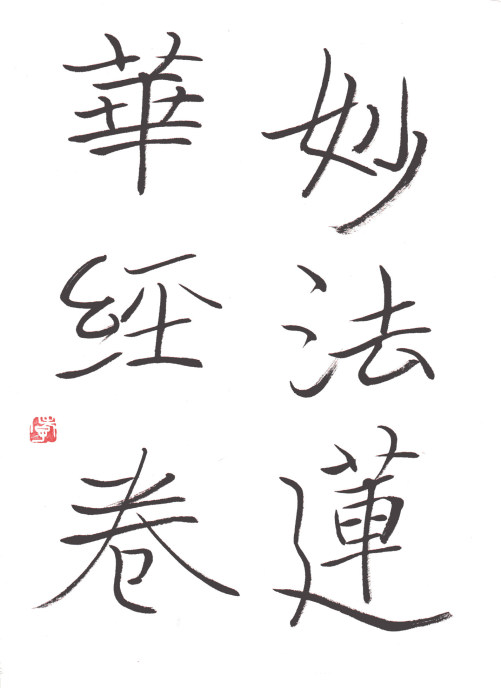 妙法蓮
華經卷